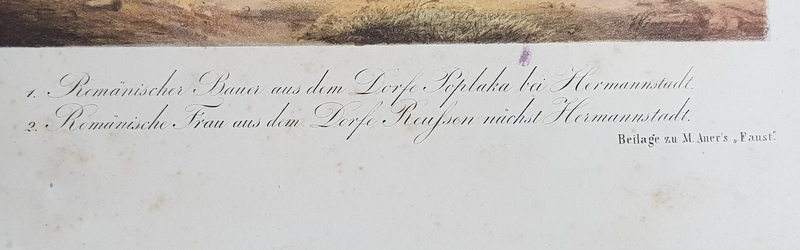 1. Romänischer Bauer aus dem Dorfe Poplaka bei Hermannstadt.
2. Romänische Frau aus dem Dorfe Reußsen nächst Hermannstadt.
Beilage zu M. Auer's „Faust“.